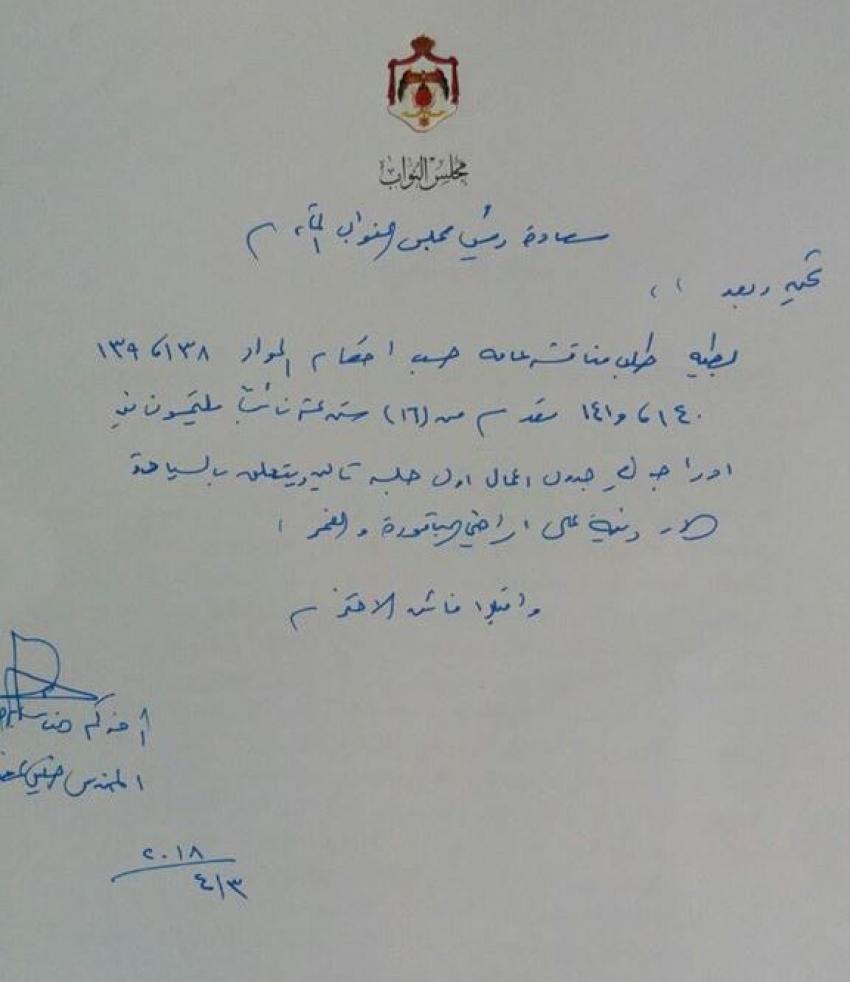 مجلس النواب
سعادة رئيس مجلس النواب الأكرم
تحيه وبعد ،،
بطيه طلب مناقشه عامه حسب احكام المواد ١٣٨ ، ١٣٩
١٤٠ ، و ١٤١ مقدم من (١٦) ستة عشر نائباً يلتمسون فيه
ادراجه على جدول اعمال اول جلسه تاليه ويتعلق بالسيادة
الاردنية على اراضي الباقورة والغمر ،
واقبلوا فائق الاحترام
أخوكم
المهندس
٢٠١٨
٤/٣